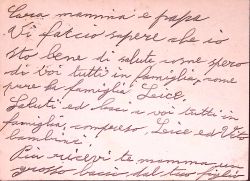 Cara mamma e papa
Vi faccio sapere che io
sto bene di salute come spero
di voi tutti in famiglia, come
pure la famiglia Leice.
Saluti ed baci a voi tutti in
famiglia, compreso, Leice ed
bambini.
Più ricevi te mamma un
grosso bacio dal tuo figlio